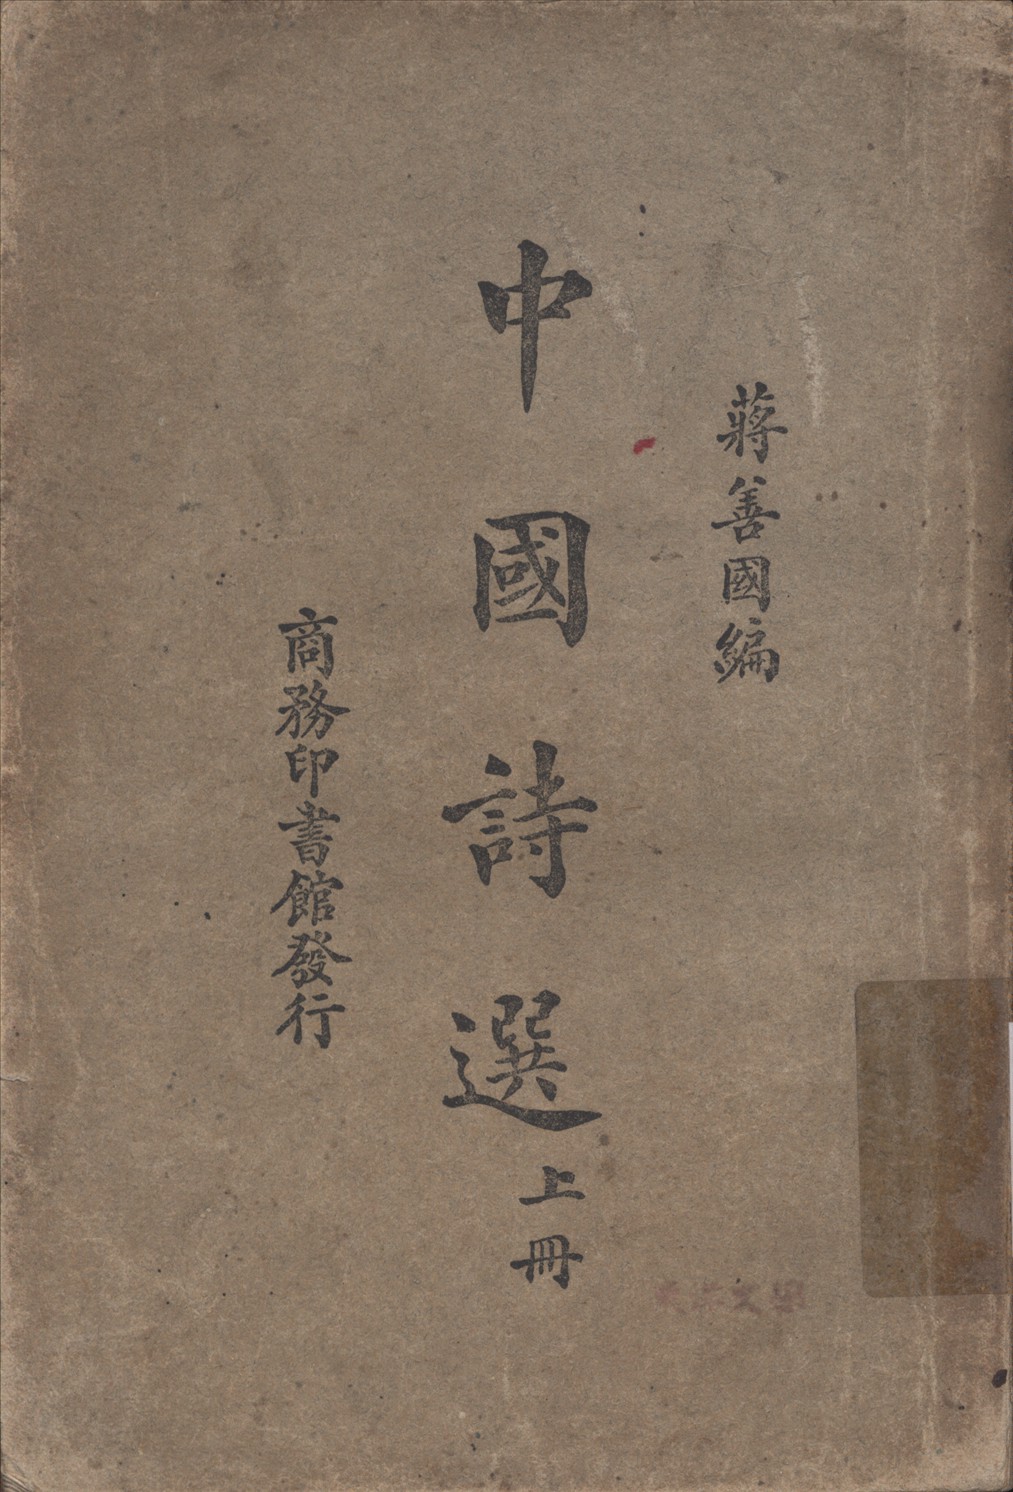 蔣善國編
中國詩選
上冊
商務印書館發行